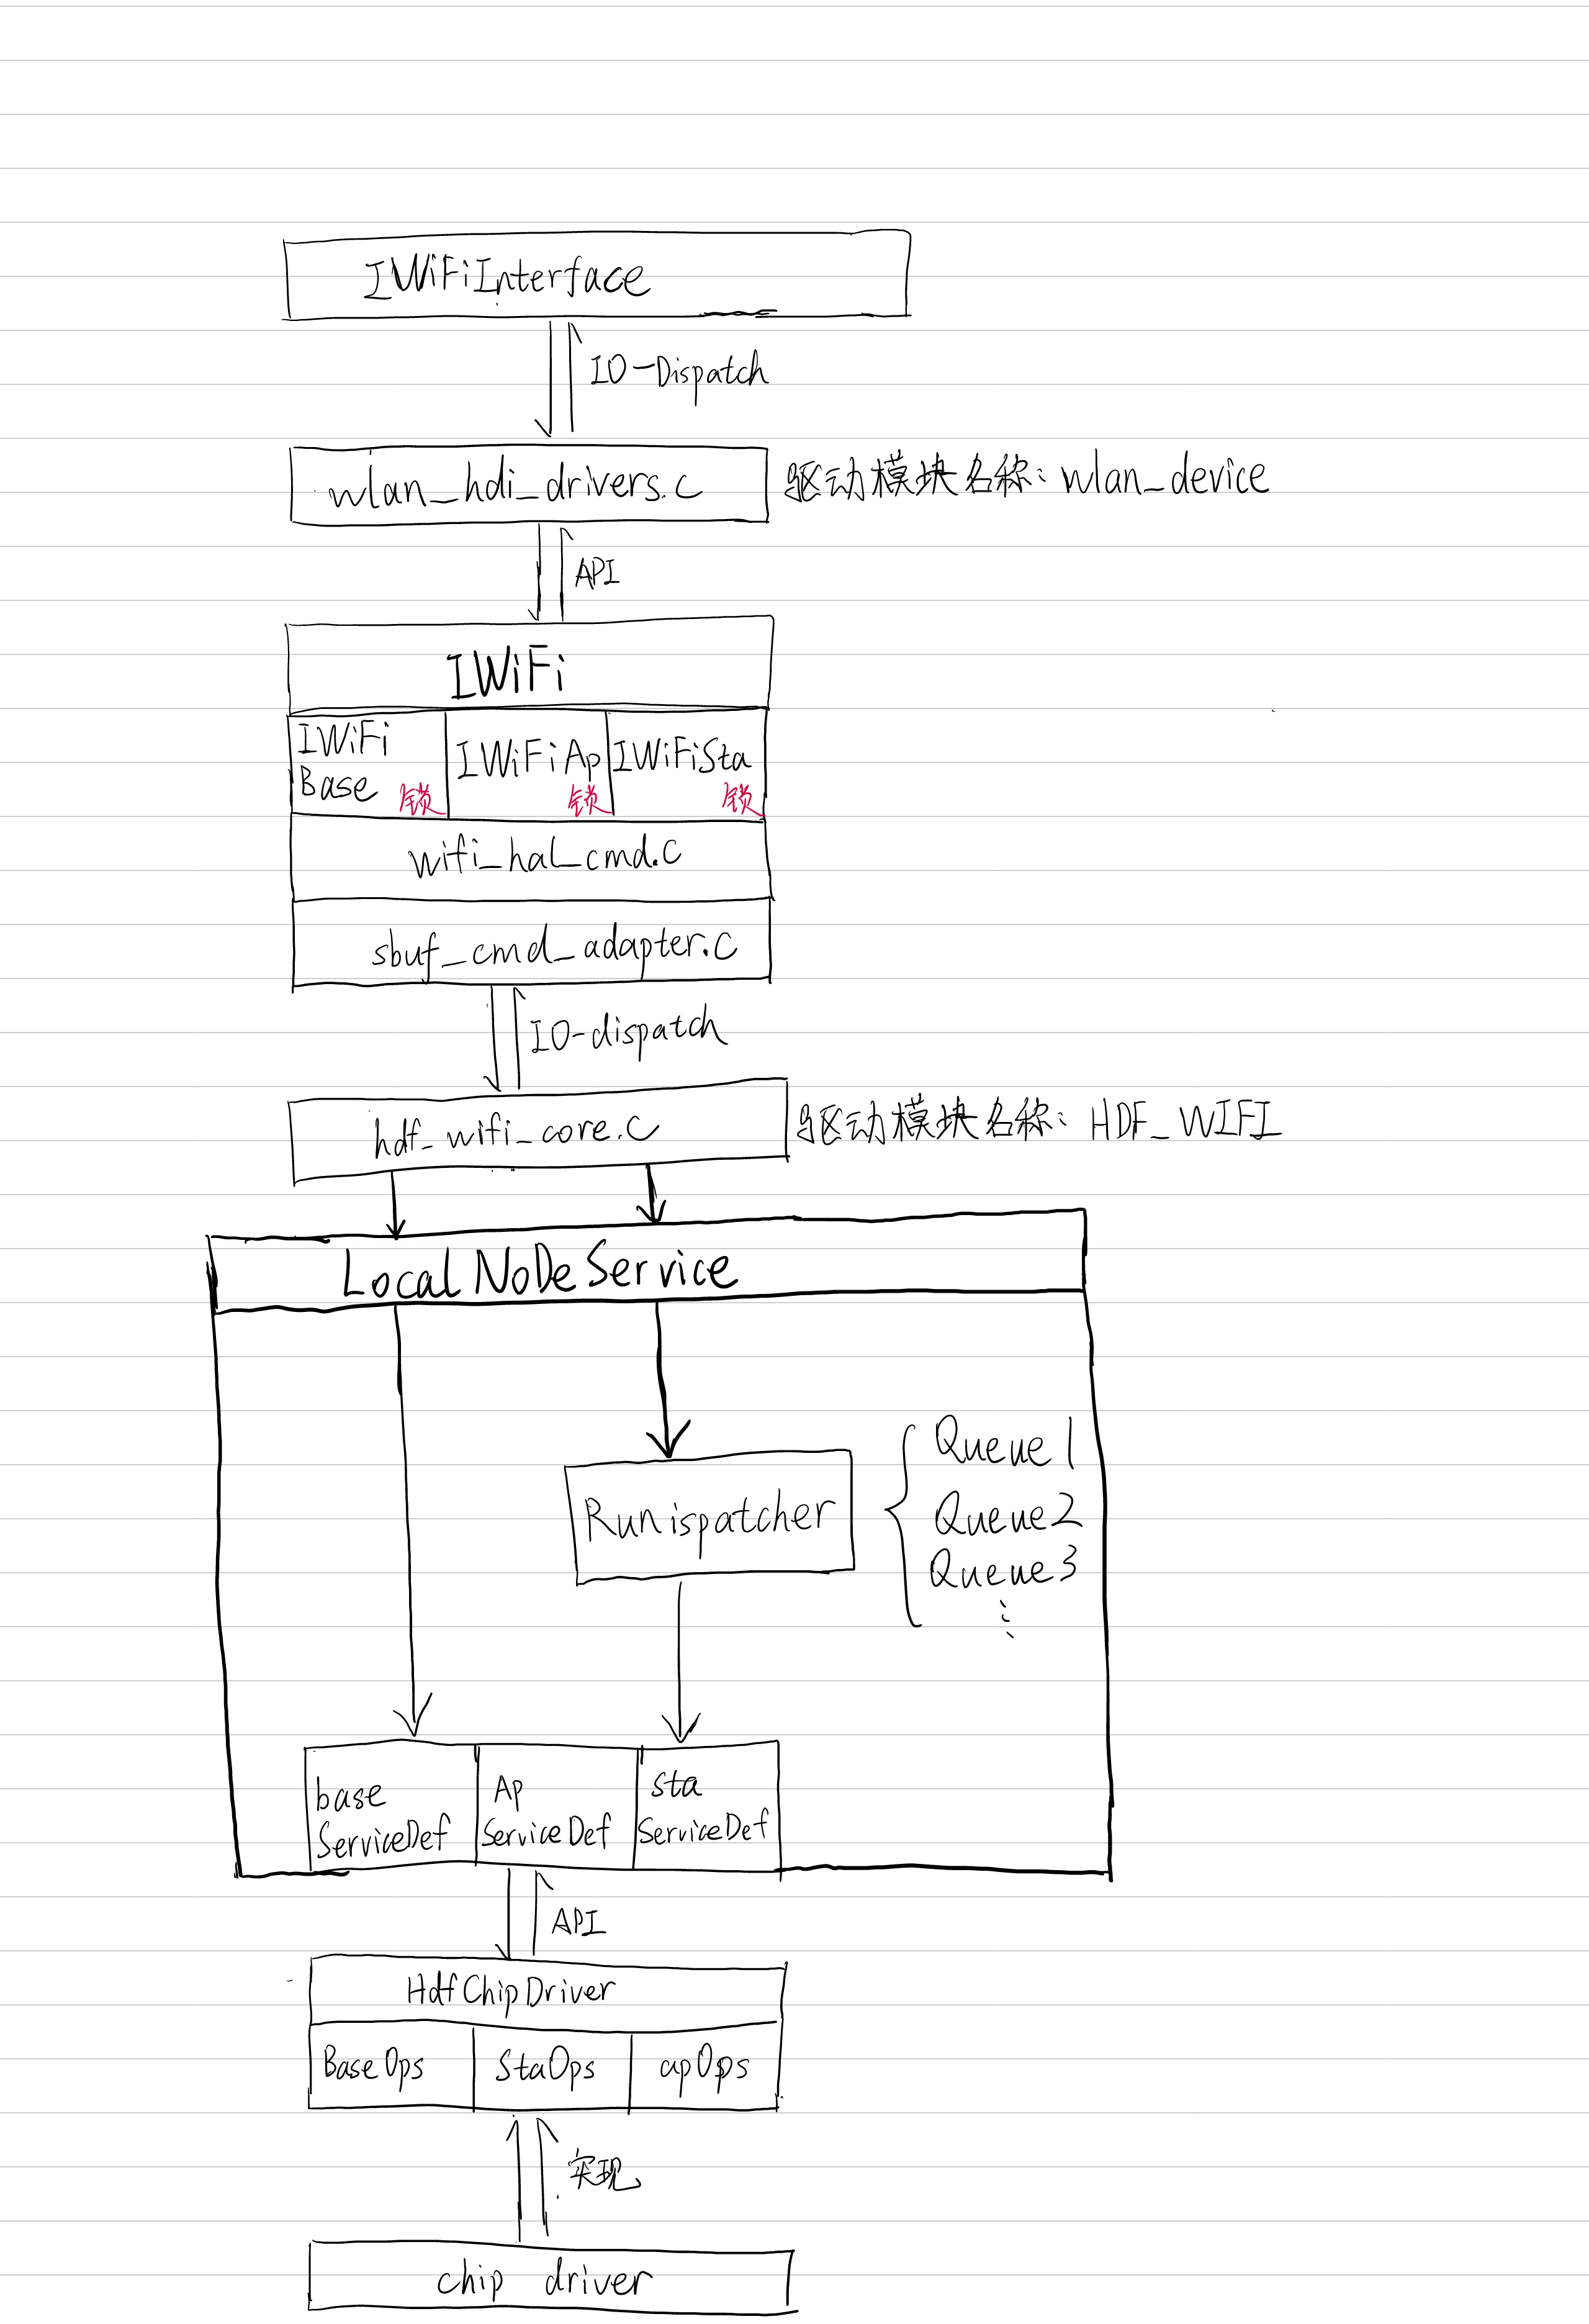 IWiFiInterface
IO-Dispatch
wlan_hdi_drivers.c
驱动模块名称：wlan_device
API
IWiFi
IWiFi
Base
锁
IWiFiAp
锁
IWiFiSta
锁
wifi_hal_cmd.c
sbuf_cmd_adapter.c
IO-dispatch
hdf_wifi_core.c
驱动模块名称：HDF_WIFI
LocalNoDeService
Runispatcher
Queue1
Queue2
Queue3
⋮
base
ServiceDef
Ap
ServiceDef
sta
ServiceDef
API
HdfChipDriver
BaseOps
StaOps
apOps
实现
chip driver